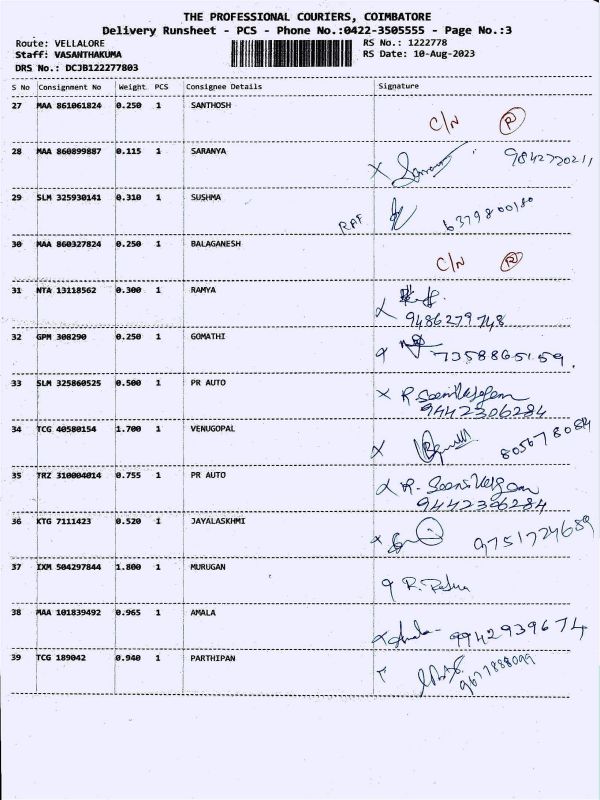 THE PROFESSIONAL COURIERS, COIMBATORE
Delivery Runsheet - PCS - Phone No.:0422-3505555 - Page No.:3
Route: VELLALORE RS No.: 1222778
Staff: VASANTHAKUMA RS Date: 10-Aug-2023
DRS No.: DCJB122277803
S No Consignment No Weight PCS Consignee Details Signature
27 MAA 861061824 0.250 1 SANTHOSH
C/N R
28 MAA 860899887 0.115 1 SARANYA
X 9842720211
29 SLM 325930141 0.310 1 SUSHMA
RAF 6379800180
30 MAA 860327824 0.250 1 BALAGANESH
C/N R
31 NTA 13118562 0.300 1 RAMYA
9486279748
32 GPM 308290 0.250 1 GOMATHI
7358865159.
33 SLM 325860525 0.500 1 PR AUTO
X R.
9442306284
34 TCG 40580154 1.700 1 VENUGOPAL
X 805678084
35 TRZ 310004014 0.755 1 PR AUTO
R.
9442306284
36 KTG 7111423 0.520 1 JAYALASKHMI
9751724689
37 IXM 504297844 1.800 1 MURUGAN
R.
38 MAA 101839492 0.965 1 AMALA
Amala 9942939674
39 TCG 189042 0.940 1 PARTHIPAN
9677888099